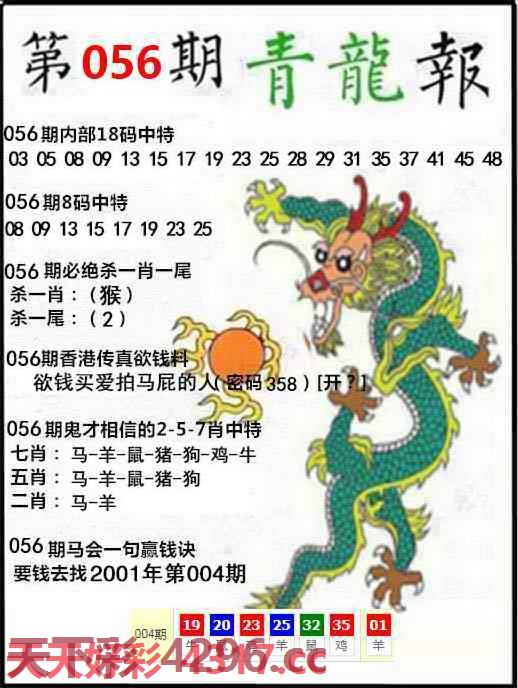 第056期 青龍報
056期内部18码中特
03 05 08 09 13 15 17 19 23 25 28 29 31 35 37 41 45 48
056期8码中特
08 09 13 15 17 19 23 25
056期必绝杀一肖一尾
杀一肖:(猴)
杀一尾:(2)
056期香港传真欲钱料
欲钱买爱拍马屁的人(密码358)[开?]
056期鬼才相信的2-5-7肖中特
七肖:马-羊-鼠-猪-狗-鸡-牛
五肖:马-羊-鼠-猪-狗
二肖:马-羊
056期马会一句赢钱诀
要钱去找2001年第004期
004期 19 20 23 25 32 35 01
牛 鼠 羊 鼠 鸡 羊
天天好彩